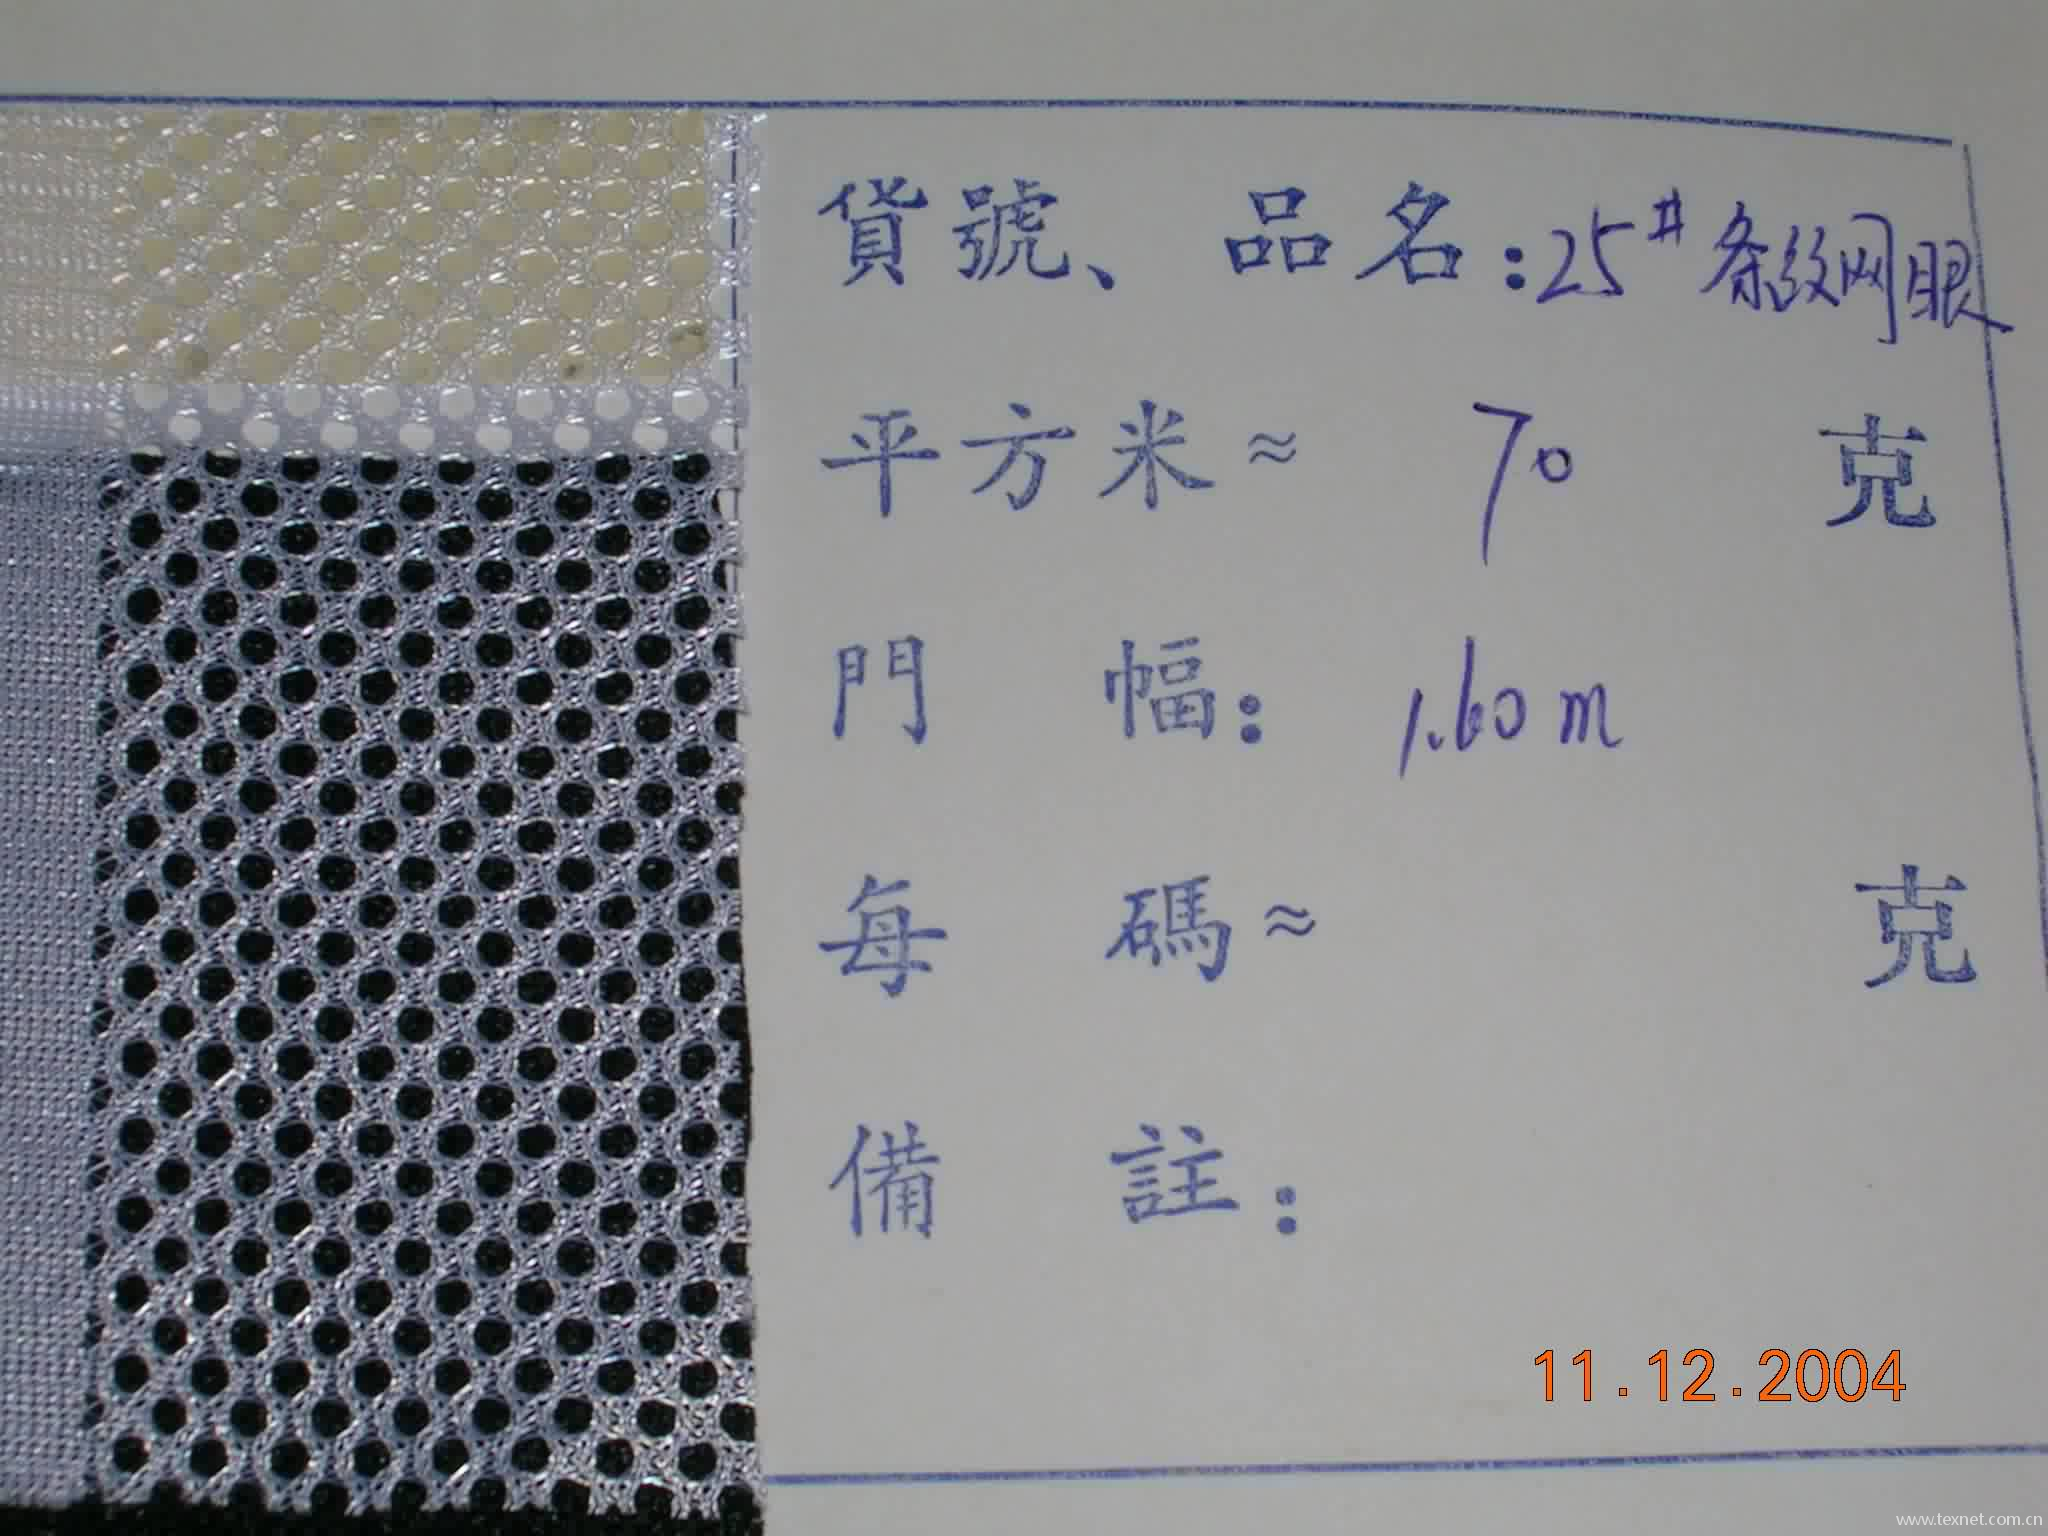 貨號、品名:25#条纹网眼
平方米≈ 70 克
門幅: 1.60m
每碼≈ 克
備註:
11.12.2004
www.texnet.com.cn